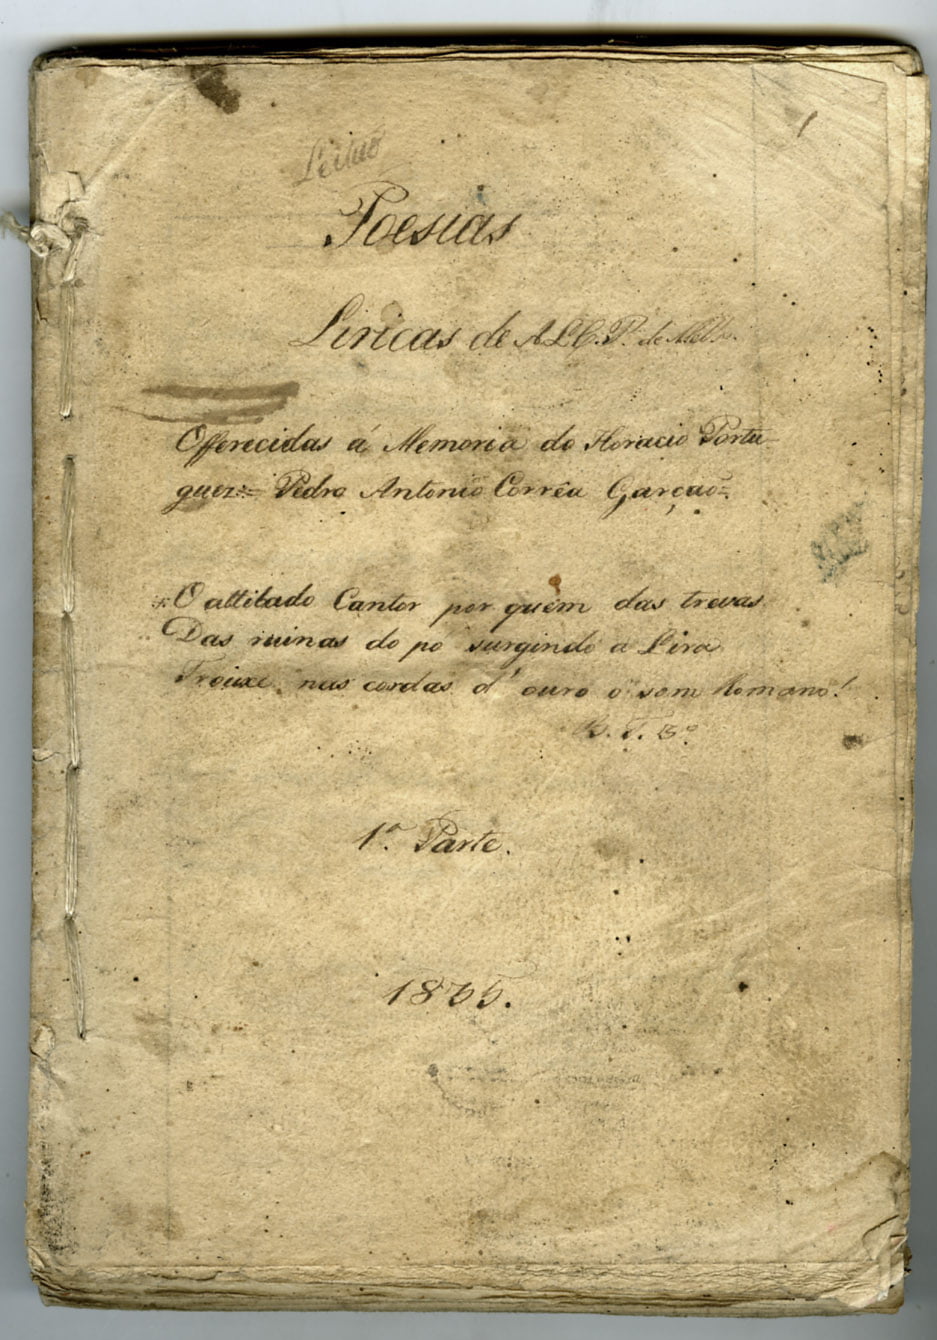 1
Leitão
Poesias
Liricas de A.L.C.P. de Mello.
Offerecidas á Memoria do Horacio Portu-
guez = Pedro Antonio Corrêa Garção =
O attilado Cantor por quem das trevas
Das ruinas do pó surgindo a Lira
Trouxe nas cordas d'ouro o som Romano!
1ª Parte.
1835.